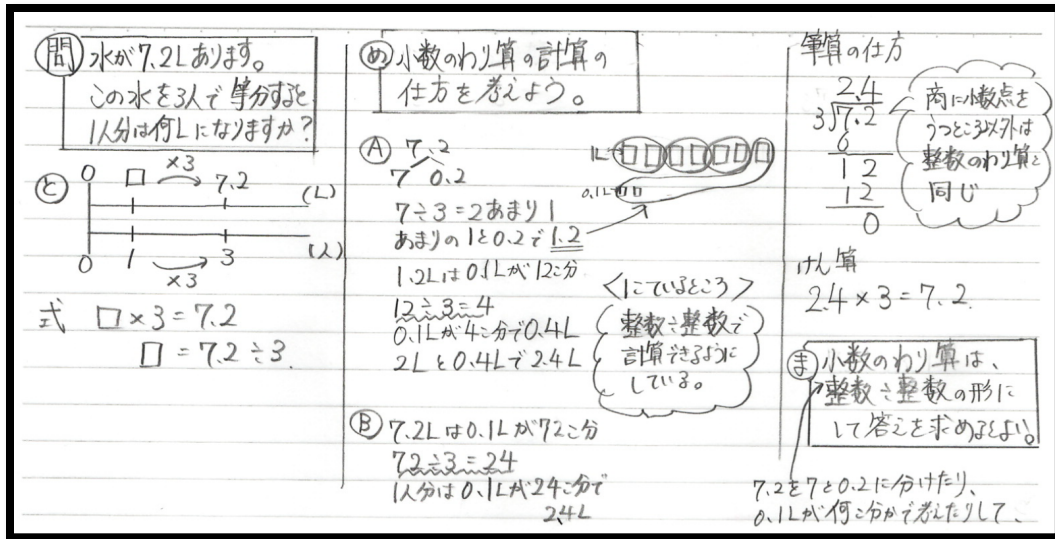 問 水が7.2Lあります。
この水を3人で等分すると
1人分は何Lになりますか？
と 0 □ ×3 7.2 (L)
0 1 ×3 3 (人)
式 □×3=7.2
□=7.2÷3
め 小数のわり算の計算の
仕方を考えよう。
A 7.2
7 0.2
1L
0.1L
7÷3=2あまり1
あまりの1と0.2で1.2
1.2Lは0.1Lが12こ分
12÷3=4
0.1Lが4こ分で0.4L
2Lと0.4Lで2.4L
<にているところ>
整数÷整数で
計算できるように
している。
B 7.2Lは0.1Lが72こ分
72÷3=24
1人分は0.1Lが24こ分で
2.4L
筆算の仕方
2.4
3)7.2
6
12
12
0
商に小数点を
うつところ以外は
整数のわり算と
同じ
けん算
2.4×3=7.2
ま 小数のわり算は、
整数÷整数の形に
して答えを求めるとよい。
7.2を7と0.2に分けたり、
0.1Lが何こ分かで考えたりして、